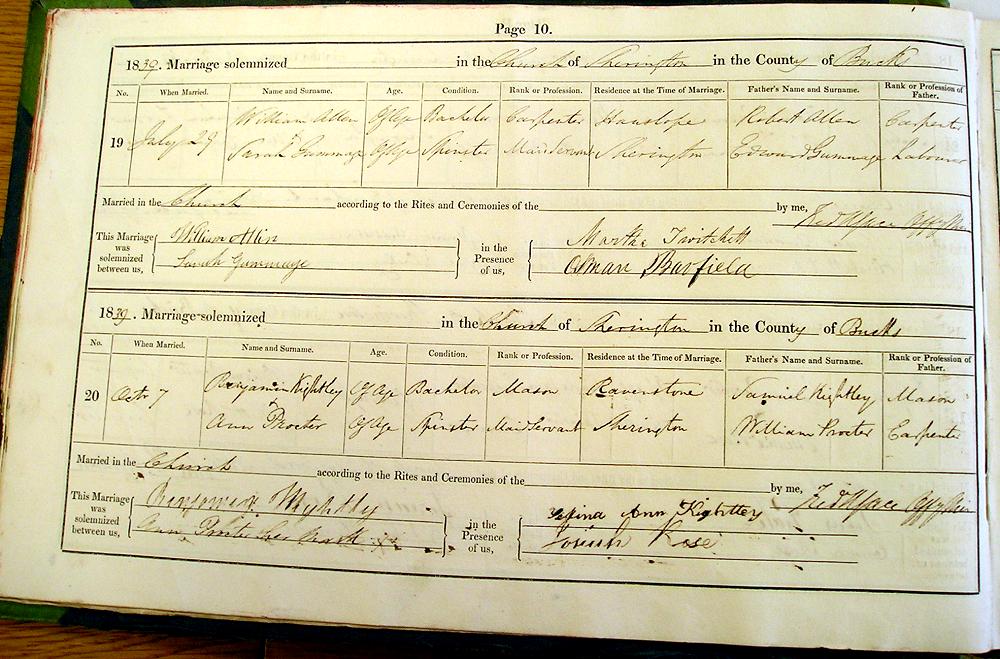 Page 10.
1839. Marriage solemnized in the Church of Sherington in the County of Bucks
No. When Married. Name and Surname. Age. Condition. Rank or Profession. Residence at the Time of Marriage. Father's Name and Surname. Rank or Profession of Father.
William Allen Of Age Bachelor Carpenter Hanslope Robert Allen Carpenter
19 July 29
Sarah Gummage Of Age Spinster Maid Servant Sherington Edward Gummage Labourer
Married in the Church according to the Rites and Ceremonies of the by me,
This Marriage was solemnized between us, William Allin in the Presence of us, Martha Twitchell
Sarah Gummage Osman Barfield
1839. Marriage solemnized in the Church of Sherington in the County of Bucks
No. When Married. Name and Surname. Age. Condition. Rank or Profession. Residence at the Time of Marriage. Father's Name and Surname. Rank or Profession of Father.
20 Octr 7 Benjamin Kightley Of Age Bachelor Mason Raverstone Samuel Kightley Mason
Ann Procter Of Age Spinster Maid Servant Sherington William Procter Carpenter
Married in the Church according to the Rites and Ceremonies of the by me,
This Marriage was solemnized between us, in the Presence of us, Ann Kightley
Ann her mark X Rose